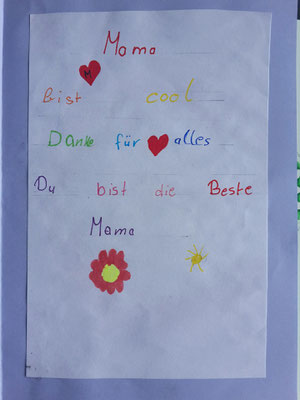 Mama
M
bist cool
Danke für alles
Du bist die Beste
Mama